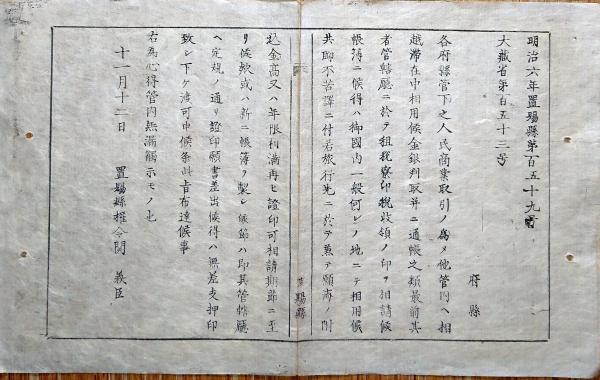 明治六年置賜縣第百五十九号
大藏省第百五十二号
府縣
各府縣管下之人民商業取引ノ為メ他管内ヘ相
越滞在中相用候金銀判取并ニ通帳之類最前其
者管轄廳ニ於テ租税寮印税收領ノ印ヲ相請候
帳簿ニ候得ハ御國内一般何レノ地ニテ相用候
共聊不苦譯ニ付若旅行先ニ於テ兼テ願濟ノ附
込金高又ハ年限相満再ヒ證印可相請期節ニ至
リ候歟或ハ新ニ帳簿ヲ製シ候節ハ即其管轄廳
ヘ定規ノ通リ證印願書差出候得ハ無差支押印
致シ下ケ渡可申候条此旨布達候事
右為心得管内無漏觸示モノ也
十一月十二日
置賜縣權令関義臣
置賜縣